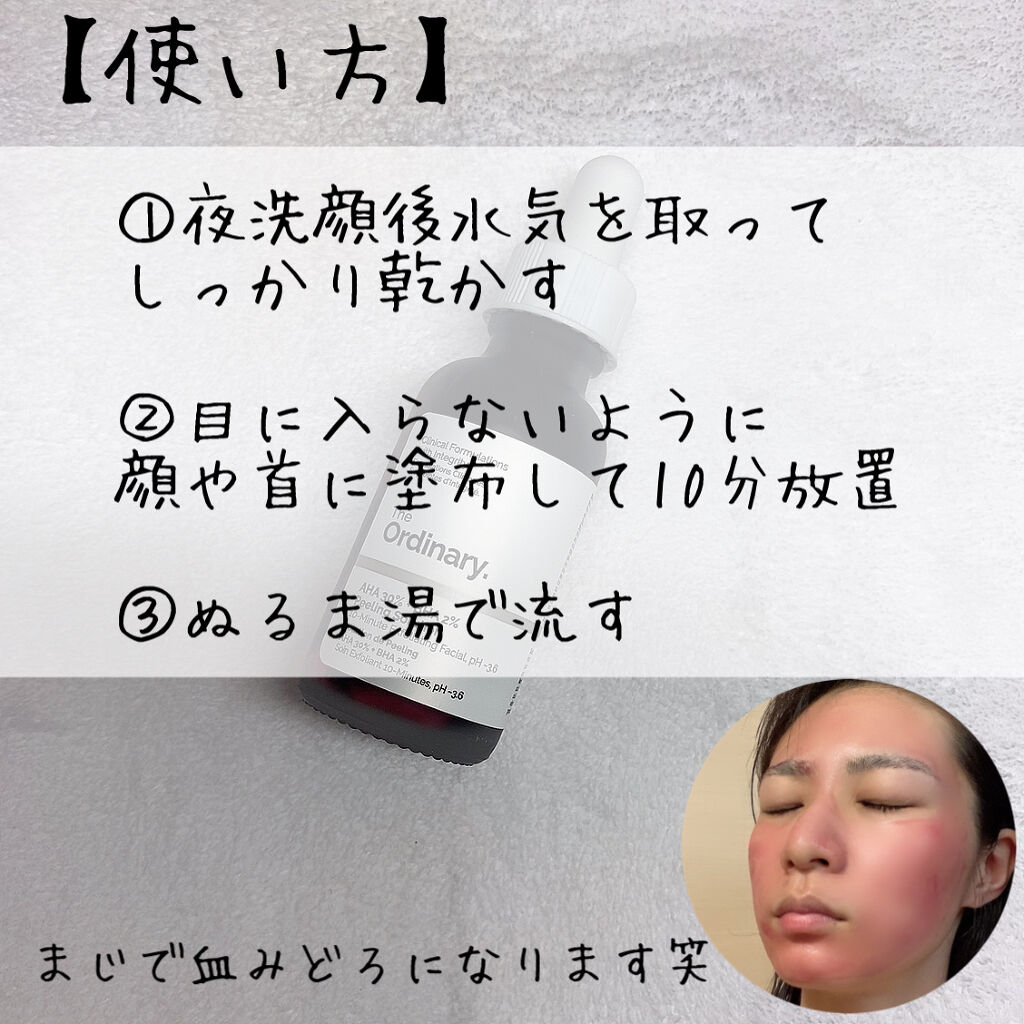 【使い方】
①夜洗顔後水気を取って
しっかり乾かす
②目に入らないように
顔や首に塗布して10分放置
③ぬるま湯で流す
Clinical Formulations
with Integrity.
The
Ordinary.
AHA 30% + BHA 2%
Peeling Solution
10-Minute Exfoliating Facial, pH ~3.6
Solution de Peeling
AHA 30% + BHA 2%
Soin Exfoliant 10-Minutes, pH ~3.6
まじで血みどろになります笑